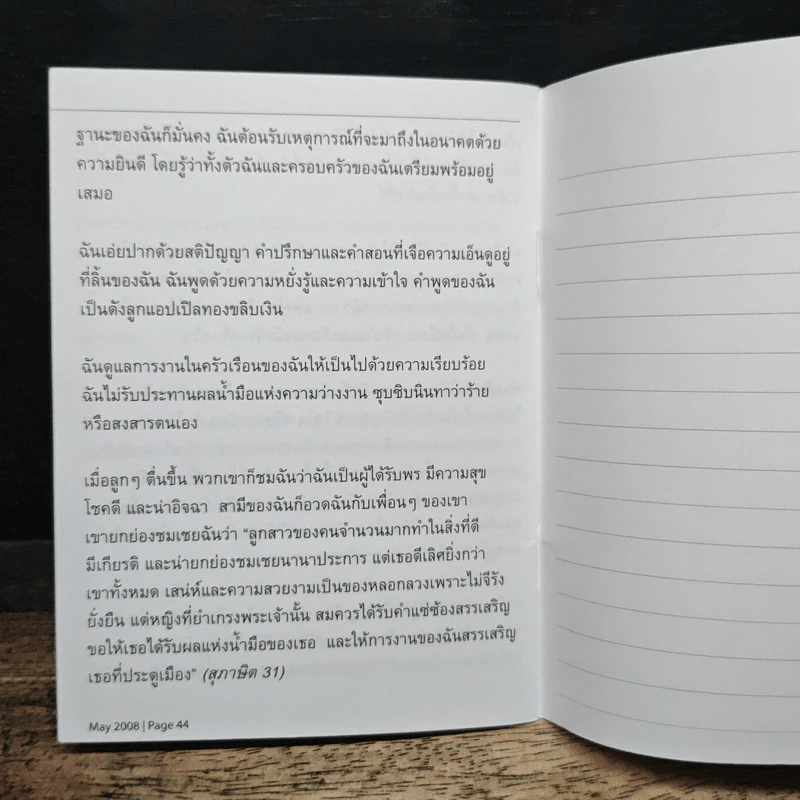 ฐานะของฉันก็มั่นคง ฉันต้อนรับเหตุการณ์ที่จะมาถึงในอนาคตด้วย
ความยินดี โดยรู้ว่าทั้งตัวฉันและครอบครัวของฉันเตรียมพร้อมอยู่
เสมอ
ฉันเอ่ยปากด้วยสติปัญญา คำปรึกษาและคำสอนที่เจือความเอ็นดูอยู่
ที่ลิ้นของฉัน ฉันพูดด้วยความหยั่งรู้และความเข้าใจ คำพูดของฉัน
เป็นดังลูกแอปเปิลทองขลิบเงิน
ฉันดูแลการงานในครัวเรือนของฉันให้เป็นไปด้วยความเรียบร้อย
ฉันไม่รับประทานผลน้ำมือแห่งความว่างงาน ซุบซิบนินทาว่าร้าย
หรือสงสารตนเอง
เมื่อลูกๆ ตื่นขึ้น พวกเขาก็ชมฉันว่าฉันเป็นผู้ได้รับพร มีความสุข
โชคดี และน่าอิจฉา สามีของฉันก็อวดฉันกับเพื่อนๆ ของเขา
เขายกย่องชมเชยฉันว่า “ลูกสาวของคนจำนวนมากทำในสิ่งที่ดี
มีเกียรติ และน่ายกย่องชมเชยนานาประการ แต่เธอดีเลิศยิ่งกว่า
เขาทั้งหมด เสน่ห์และความสวยงามเป็นของหลอกลวงเพราะไม่จีรัง
ยั่งยืน แต่หญิงที่ยำเกรงพระเจ้านั้น สมควรได้รับคำแซ่ซ้องสรรเสริญ
ขอให้เธอได้รับผลแห่งน้ำมือของเธอ และให้การงานของฉันสรรเสริญ
เธอที่ประตูเมือง” (สุภาษิต 31)
May 2008 | Page 44